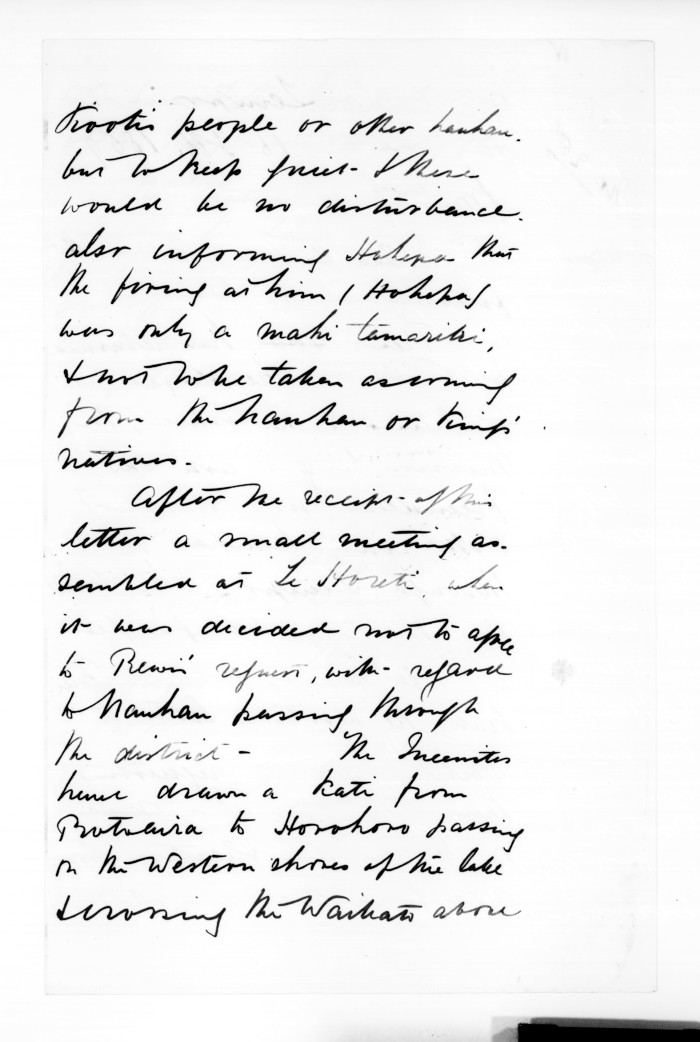 Kooti's people or other hauhau.
but to keep quiet - & there
would be no disturbance.
also informing Hohepa that
the firing at him (Hohepa)
was only a mahi tamariki,
& not to be taken as coming
from the hauhau or King's
natives.
After the receipt - of this
letter a small meeting as-
sembled at Te Hareti, when
it was decided not to agree
to Rewi's request, with - regard
to Hauhau passing through
the district -    The Queenites
have drawn a Kati from
Rotoaira to Horohoro passing
on the Western shores of the lake
& crossing the Waikato above